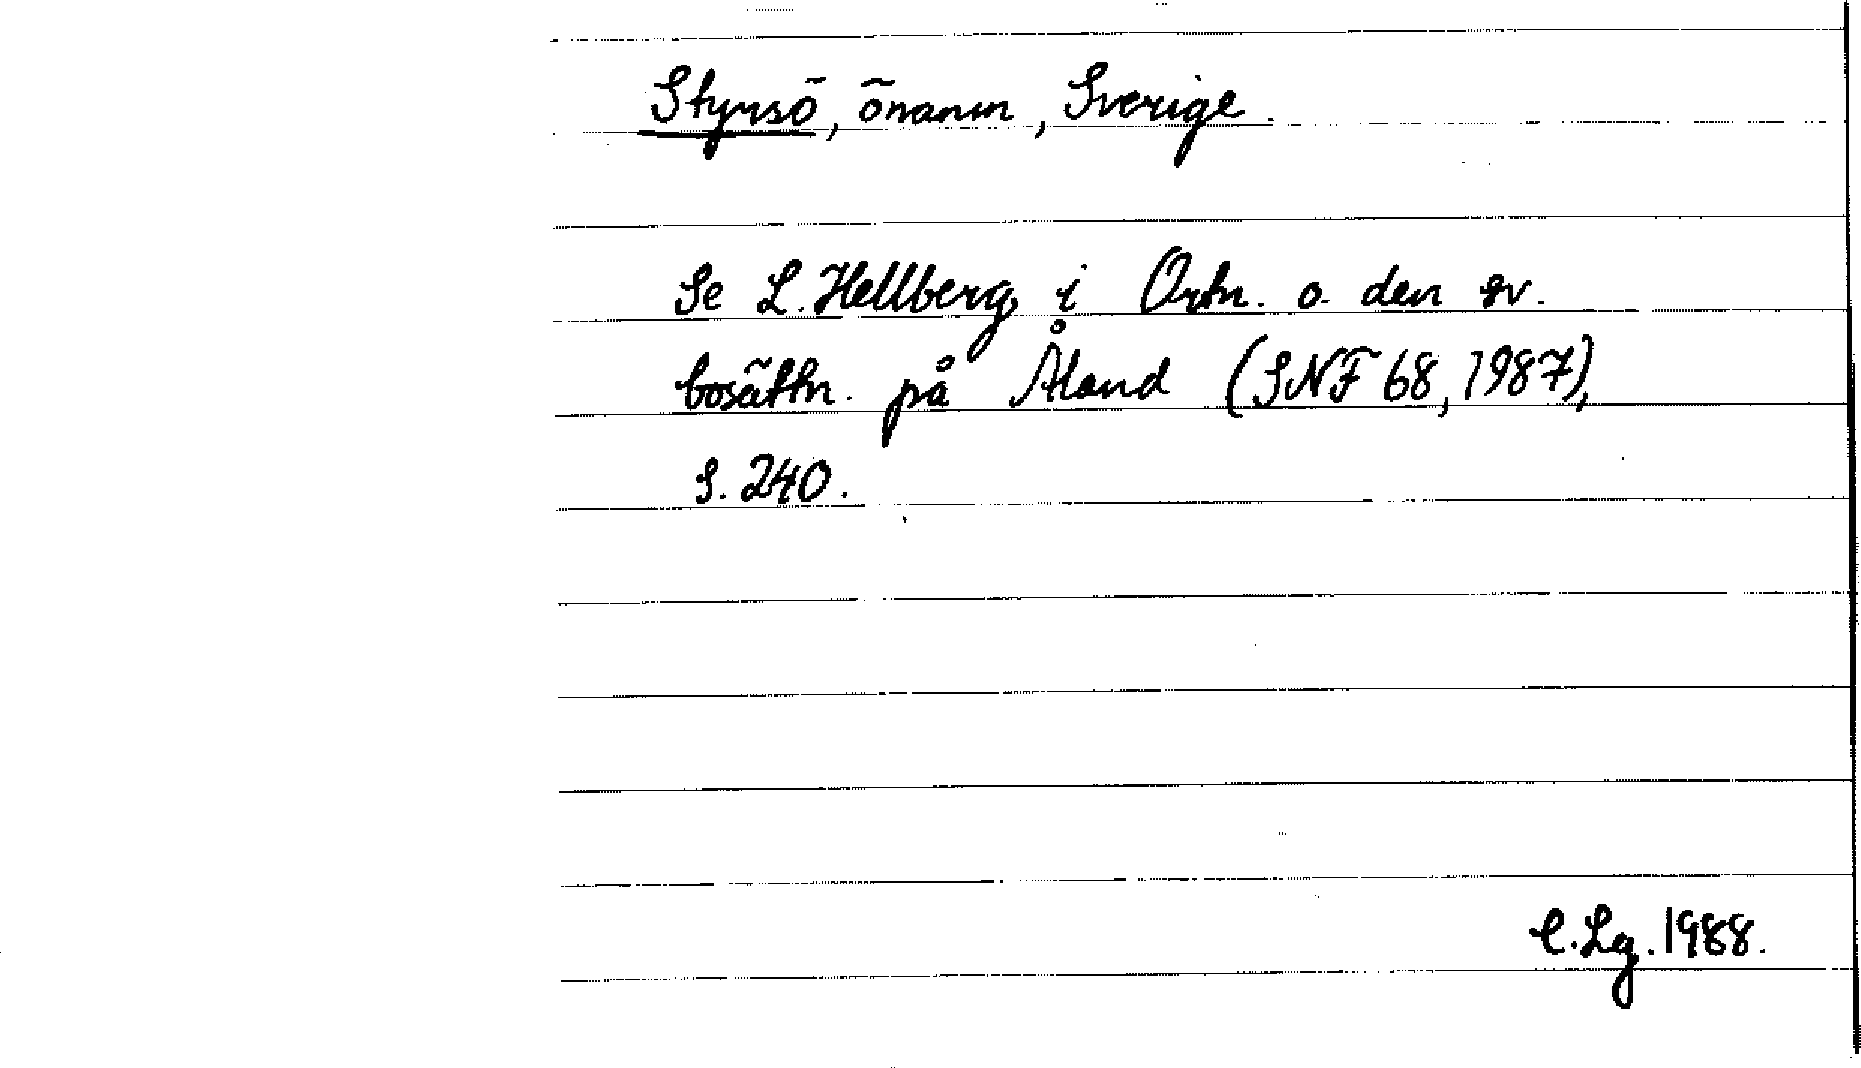 Styrsö, önamn, Sverige.
Se L. Hellberg i Ortn. o. den sv.
bosättn. på Åland (SNF 68, 1987),
s. 240.
C. Lg. 1988.